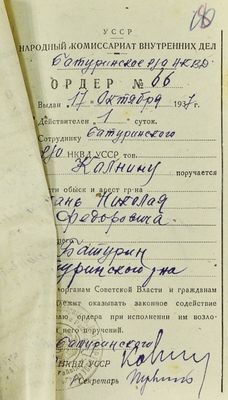 180
УССР
НАРОДНЫЙ КОМИССАРИАТ ВНУТРЕННИХ ДЕЛ
Батуринское р/о НКВД
ОРДЕР № 66
Выдан 17 Октября 1937 г.
Действителен 1 суток.
Сотруднику Батуринского
р/о НКВД УССР тов.
Калнину поручается
сти обыск и арест гр-на
ань Николай
Федоровича.
Батурин
туринского р-на
органам Советской Власти и гражданам
жит оказывать законное содействие
ордера при исполнении им возло
го поручений.
Батуринского
НКВД УССР
Секретарь